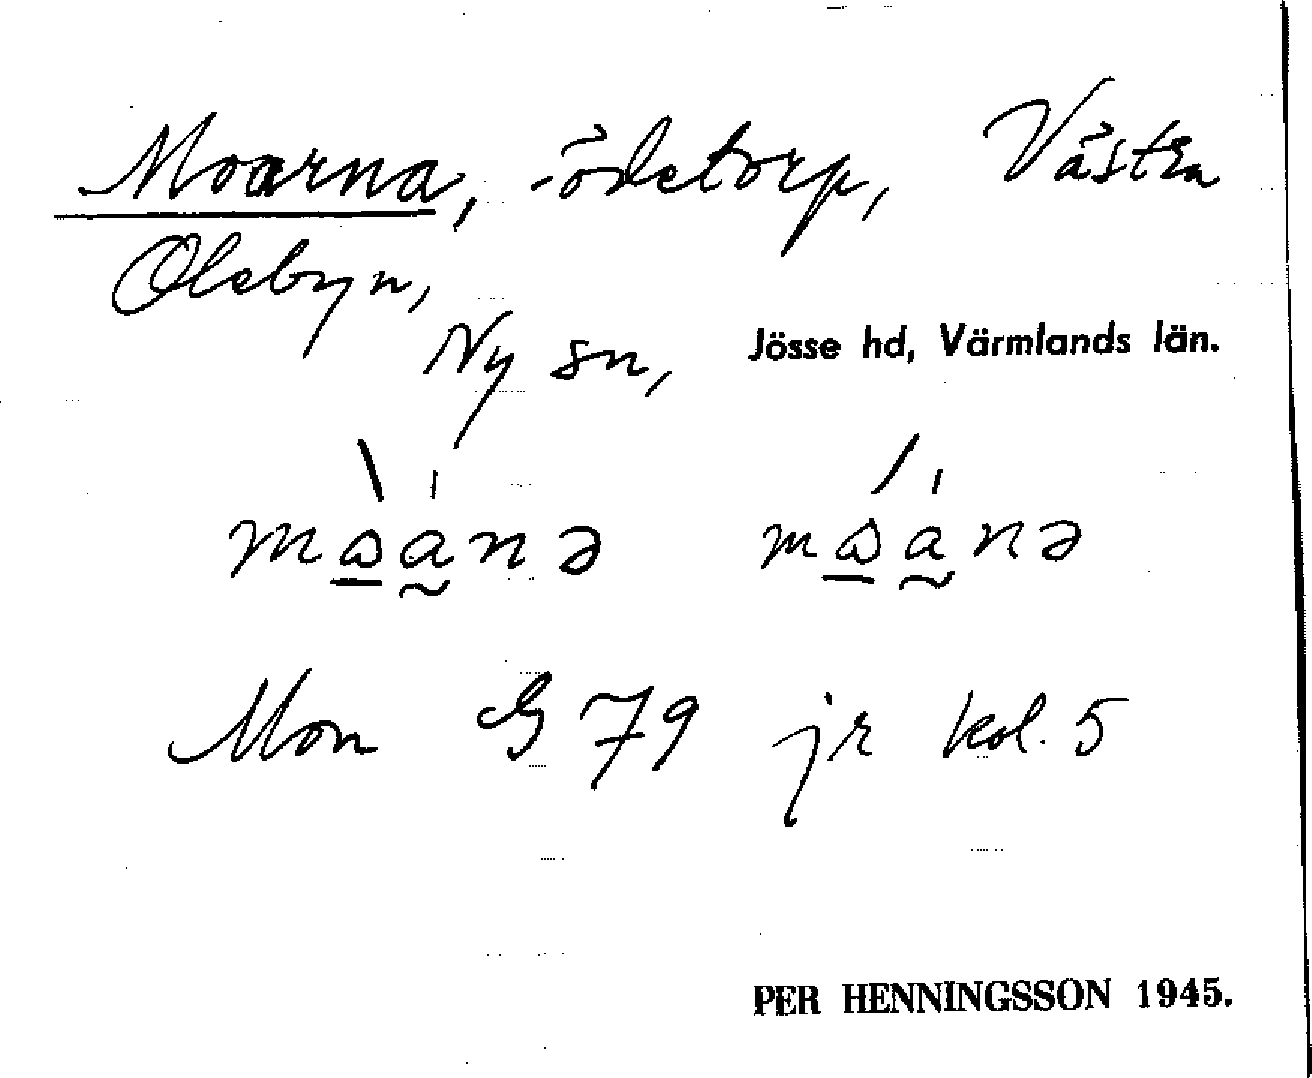 Moarna, -ödetorp, Västra
Olebyn,
Ny sn, Jösse hd, Värmlands län.
Mon G 79 jr kol. 5
PER HENNINGSSON 1945.